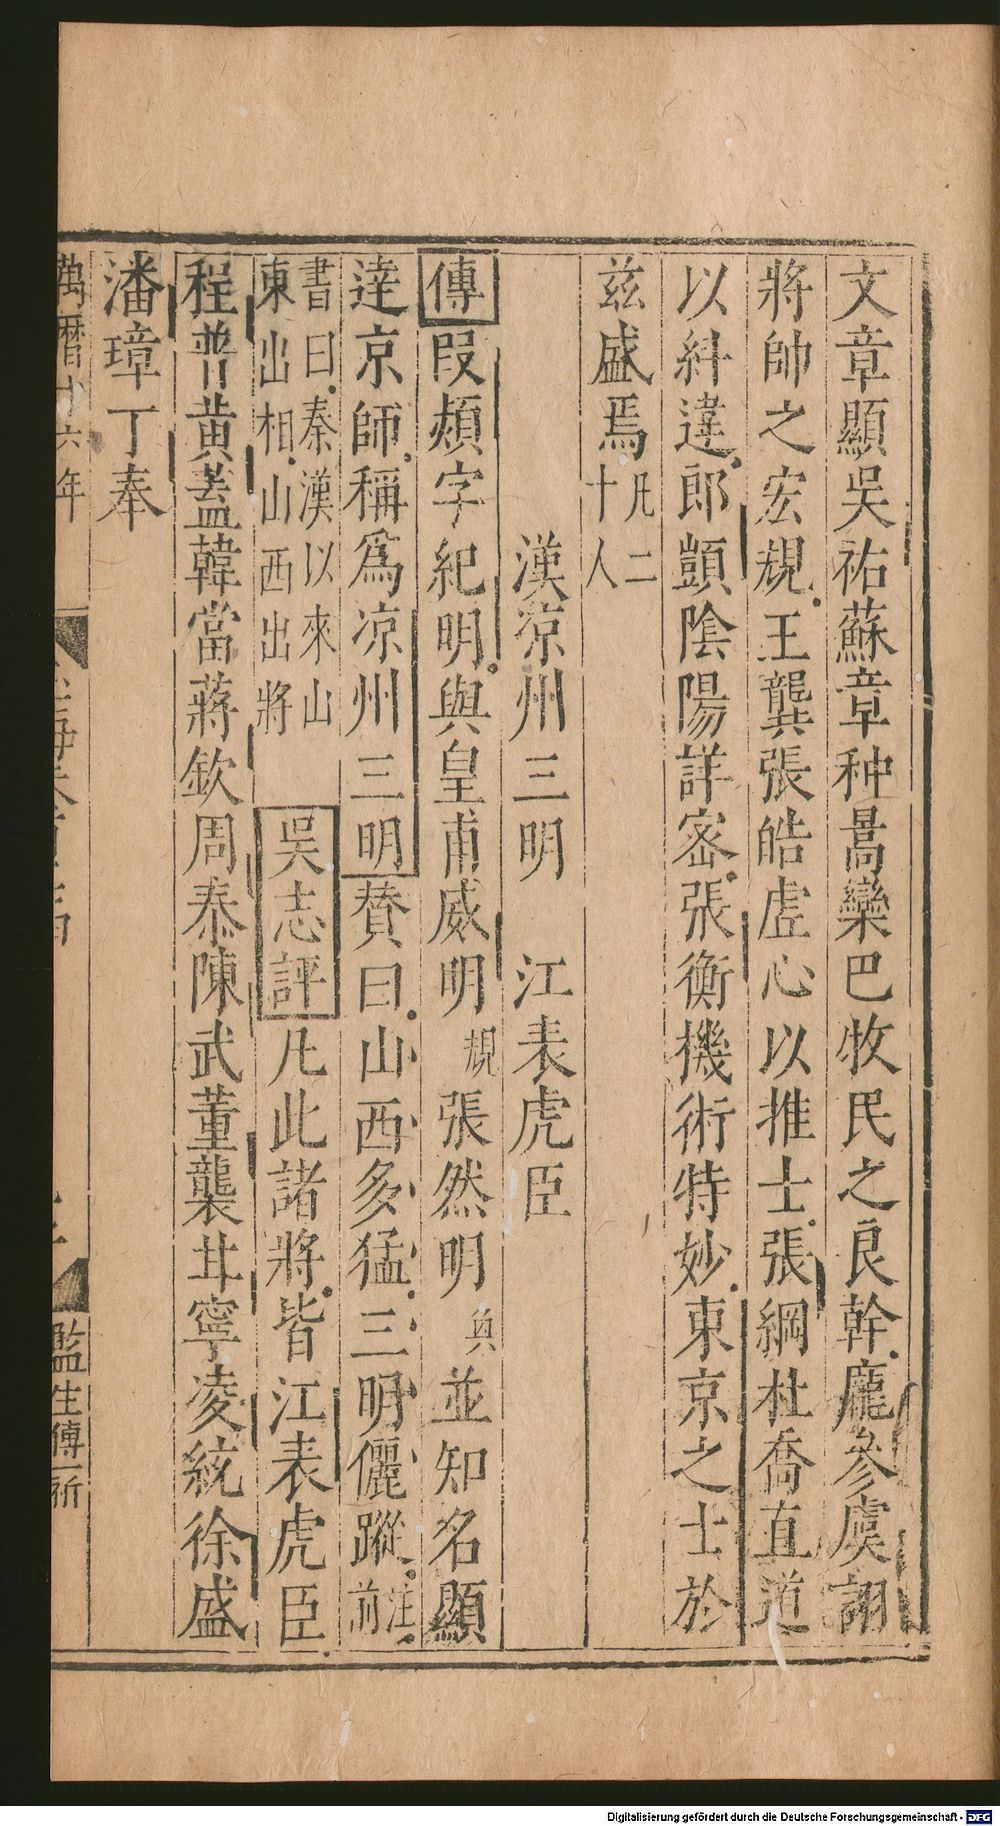 文章顯吳祐蘇章种暠欒巴牧民之良幹龐參虞詡
將帥之宏規王龔張皓虛心以推士張綱杜喬直道
以糾違郎顗陰陽詳密張衡機術特妙東京之士於
茲盛焉凡二十人
漢凉州三明　江表虎臣
傳段熲字紀明與皇甫威明規張然明奐並知名顯
達京師稱爲凉州三明贊曰山西多猛三明儷蹤注前
書曰秦漢以來山東出相山西出將　吳志評凡此諸將皆江表虎臣
程普黃蓋韓當蔣欽周泰陳武董襲甘寧凌統徐盛
潘璋丁奉
萬曆十六年
監生傅一新
Digitalisierung gefördert durch die Deutsche Forschungsgemeinschaft - DFG